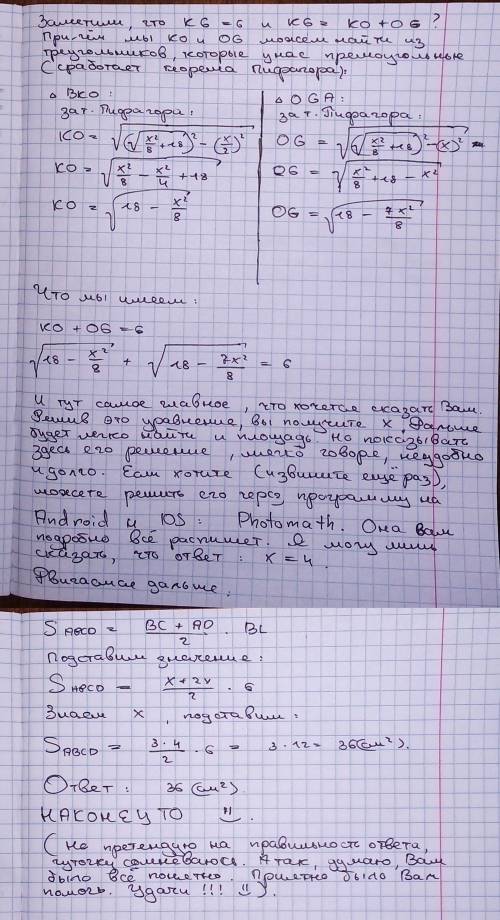 Заметили, что KG = 6 и KG = KO + OG ?
Причём мы KO и OG можем найти из
треугольников, которые у нас прямоугольные
(сработает теорема Пифагора):
△ BKO :
за т. Пифагора:
KO = √((√(x²/8 + 18))² − (x/2)²)
KO = √(x²/8 − x²/4 + 18)
KO = √(18 − x²/8)
△ OGA :
за т. Пифагора:
OG = √((√(x²/8 + 18))² − (x)²) =
OG = √(x²/8 + 18 − x²)
OG = √(18 − 7x²/8)
Что мы имеем:
KO + OG = 6
√(18 − x²/8) + √(18 − 7x²/8) = 6
И тут самое главное, что хочется сказать Вам.
Решив это уравнение, вы получите x. Дальше
будет легко найти и площадь. Но показывать
здесь его решение, мягко говоря, неудобно
и долго. Если хотите (извините ещё раз),
можете решить его через программу на
Android и IOS : Photomath. Она вам
подробно всё распишет. Я могу лишь
сказать, что ответ : x = 4.
Двигаемся дальше.
S ABCD = (BC + AD)/2 · BL
Подставим значение:
S ABCD = (x + 2x)/2 · 6
Знаем x, подставим:
S ABCD = (3 · 4)/2 · 6 = 3 · 12 = 36 (см²).
Ответ : 36 (см²)
НАКОНЕЦ ТО !!).
(Не претендую на правильность ответа,
чуточку сомневаюсь. А так, думаю, Вам
было всё понятно. Приятно было Вам
помочь. Удачи !!! !!)).